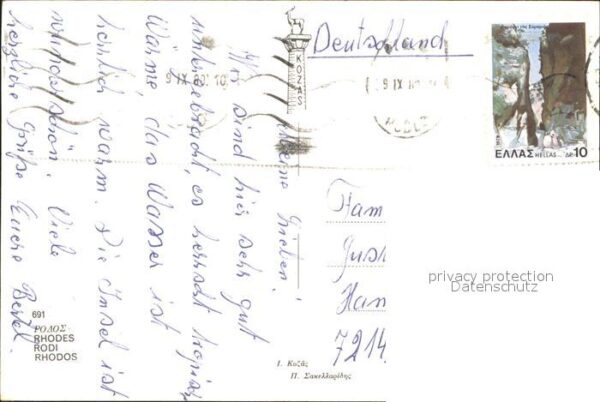 Deutschland
KOZAS
9 IX 80 10
9 IX 8
ΕΛΛΑΣ HELLAS ΔΡ. 10
Meine Lieben!
Wir sind hier sehr gut
untergebracht, es herrscht tropische
Wärme, das Wasser ist
herrlich warm. Die Insel ist
wunderschön. Viele
herzliche Grüße Eure
Bertel.
Fam
Just
Han
7214
privacy protection
Datenschutz
691
ΡΟΔΟΣ
RHODES
RODI
RHODOS
Ι. Κοζάς
Π. Σακελλαρίδης